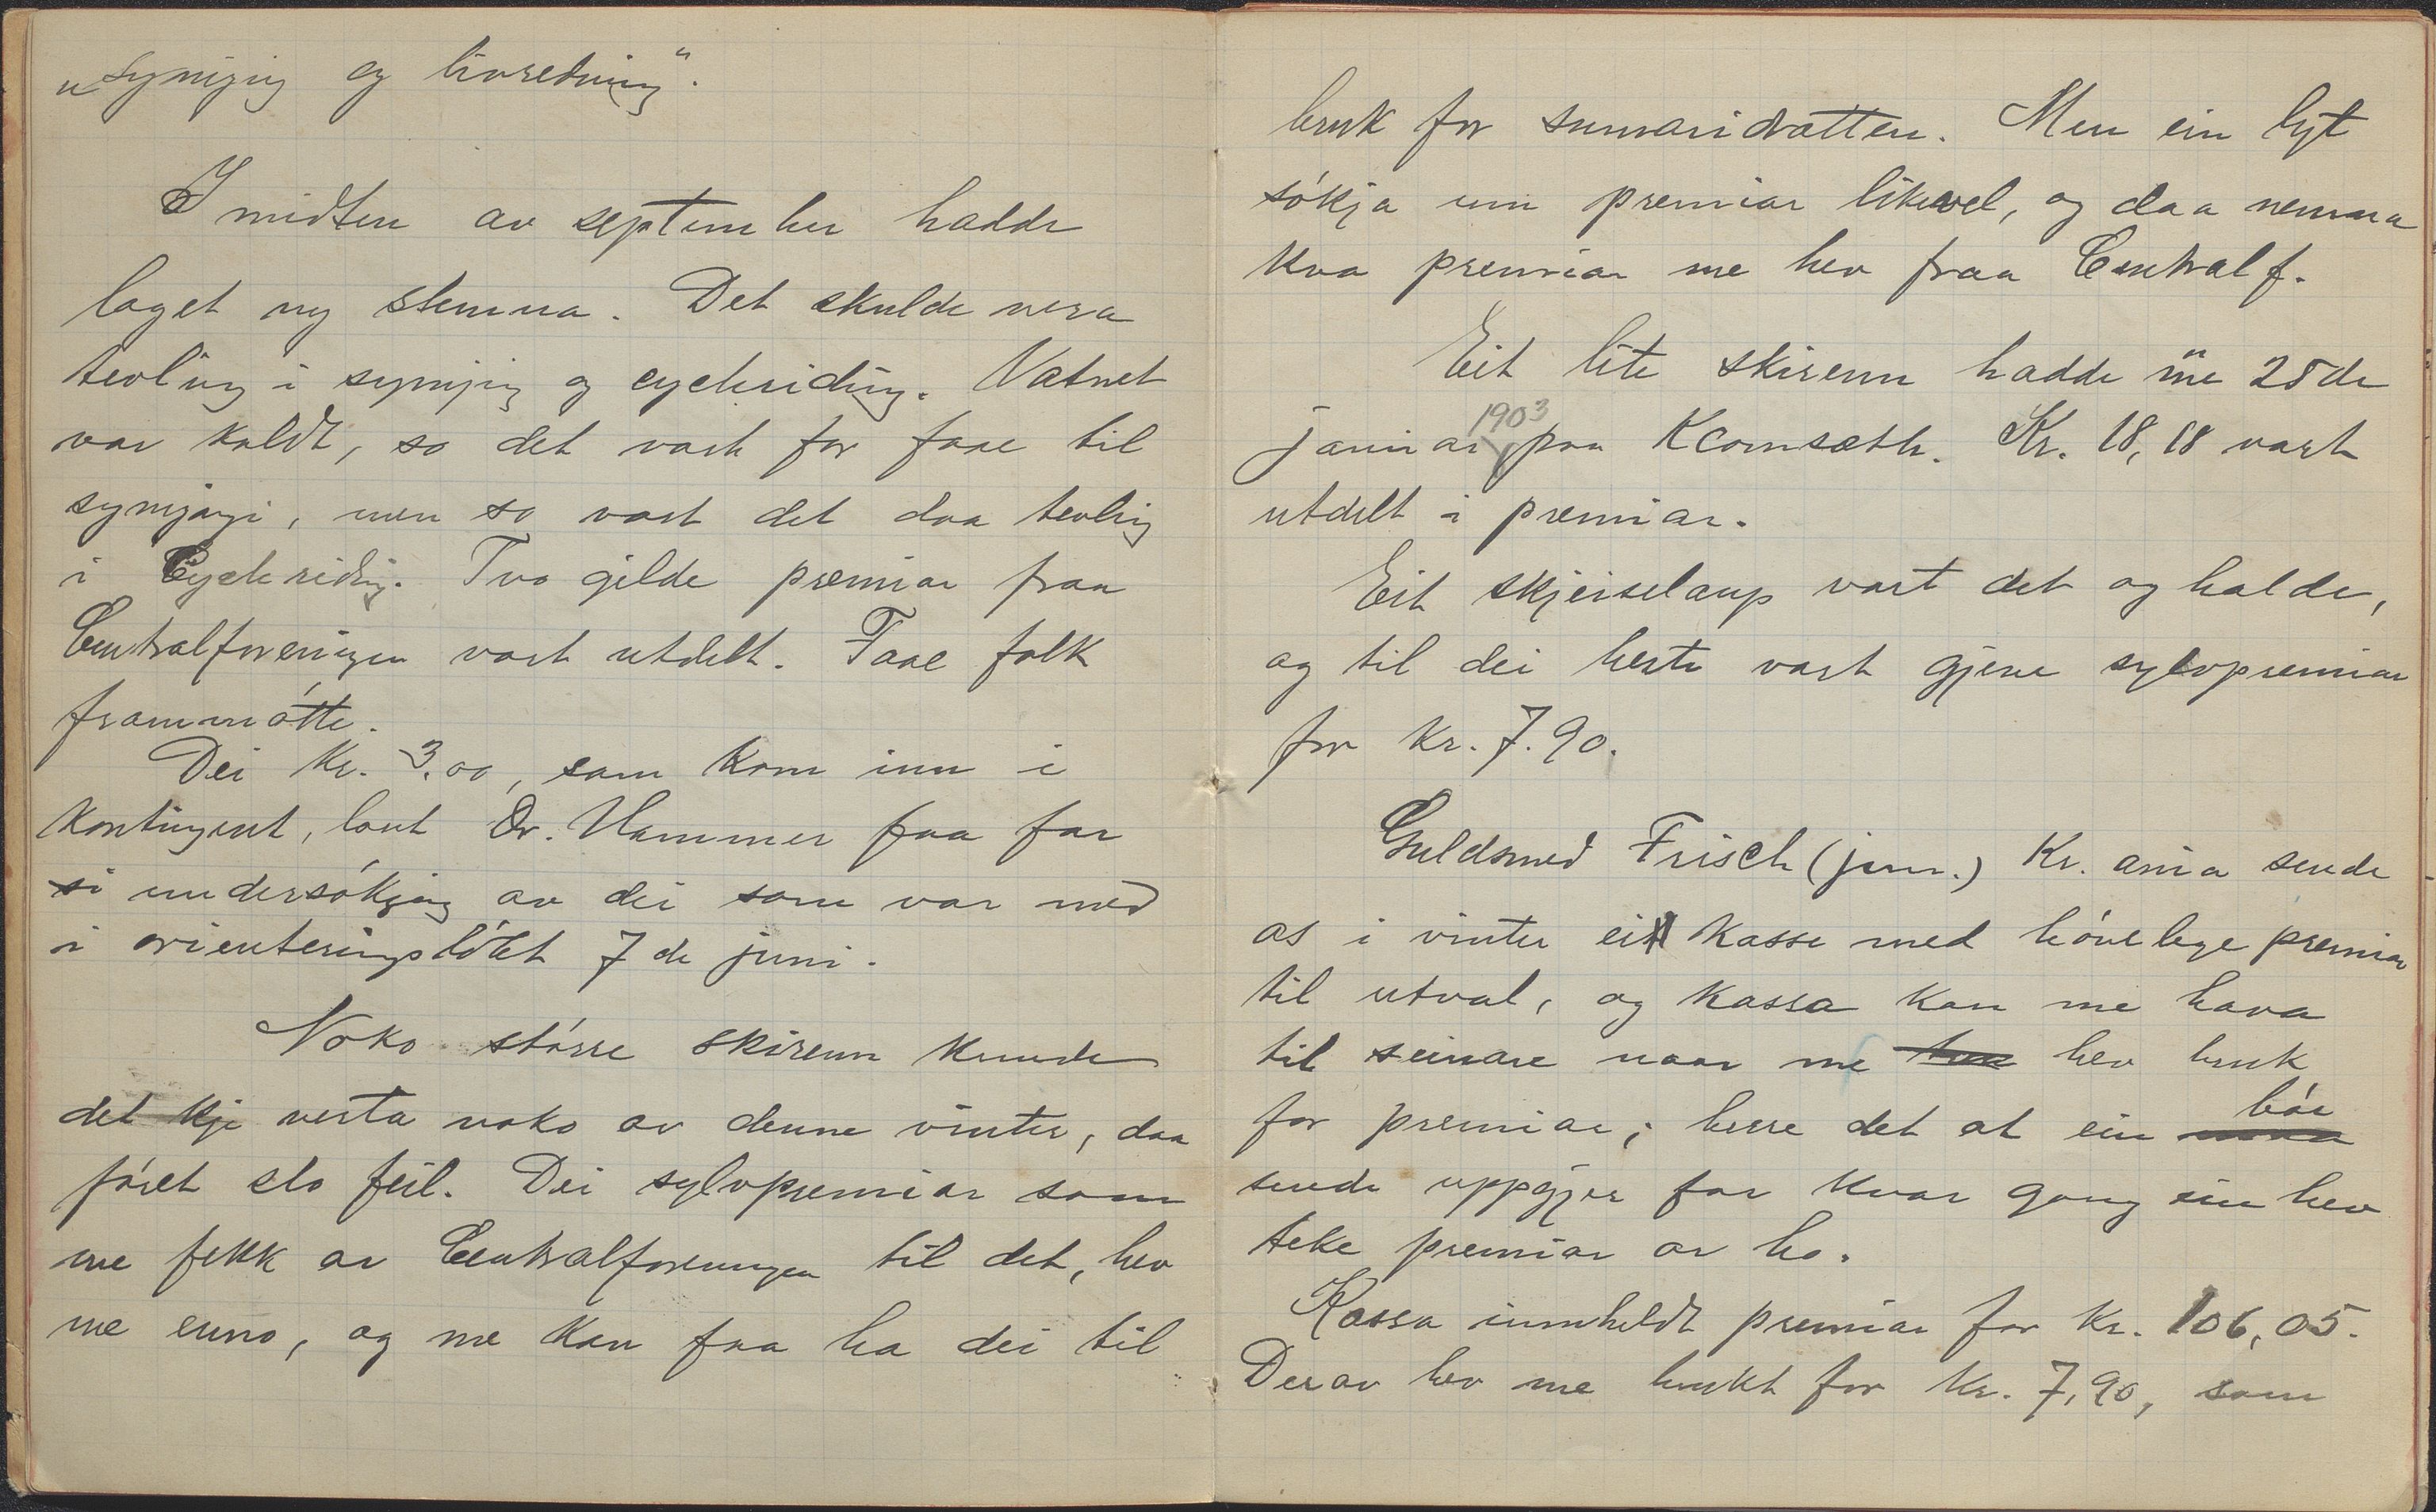 „symjing og livredning".
I midten av september hadde
laget ny stemna. Det skulde vera
tevling i symjing og cycleriding. Vatnet
var kaldt, so det vart for faae til
symjingi, men so vart det daa tevling
i Cycleriding. Tvo gilde premiar fraa
Centralforeningen vart utdelt. Faae folk
frammótte.
Dei kr. 3.00, som kom inn i
kontingent, laut Dr. Hammer faa for
si undersókjing av dei som var med
i orienteringslótet 7de juni.
Noko stórre skirenn kunde
det kje verta noko av denne vinter, daa
fóret slo feil. Dei sylvpremiar som
me fekk av Centralforeningen til det, hev
me enno, og me kan faa ha dei til
bruk for sumaridrotten. Men ein lyt
sókja um premiar likevel, og daa nemna
kva premiar me hev fraa Centralf.
Eit lite skirenn hadde me 25de
januar 1903 paa Kcomsæth. Kr. 18,18 vart
utdelt i premiar.
Eit skjeiselaup vart det og halde,
og til dei beste vart gjeve sylvpremiar
for kr. 7.90.
Guldsmed Frisch (jun.) Kr. ania sende
os i vinter ei kasse med hóvelege premiar
til utval, og kassa kan me hava
til seinare naar me hev bruk
for premiar; berre det at ein bór
sende uppgjer for kvar gong ein hev
teke premiar av ho.
Kassa innheldt premiar for kr. 106,05.
Derav hev me brukt for kr. 7,90, som